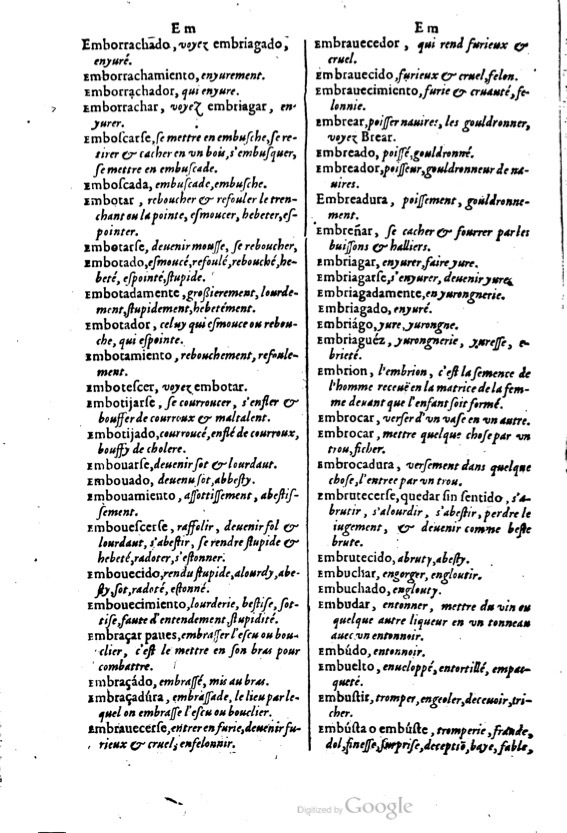 E m
Emborrachado, voyez embriagado,
enyuré.
Emborrachamiento, enyurement.
Emborrachador, qui enyure.
Emborrachar, voyez embriagar, en-
yurer.
Emboſcarſe, ſe mettre en embuſche, ſe re-
tirer & cacher en vn bois, s'embuſquer,
ſe mettre en embuſcade.
Emboſcada, embuſcade, embuſche.
Embotar, reboucher & refouler le tren-
chant ou la pointe, eſmoucer, hebeter, eſ-
pointer.
Embotarſe, deuenir mouſſe, ſe reboucher,
Embotado, eſmoucé, refoulé, rebouché, he-
beté, eſpointé, ſtupide.
Embotadamente, groſſierement, lourde-
ment, ſtupidement, hebetément.
Embotador, celuy qui eſmouce ou rebou-
che, qui eſpointe.
Embotamiento, rebouchement, refoule-
ment.
Emboteſcer, voyez embotar.
Embotijarſe, ſe courroucer, s'enfler &
bouffer de courroux & maltalent.
Embotijado, courroucé, enflé de courroux,
bouffy de cholere.
Embouarſe, deuenir ſot & lourdaut.
Embouado, deuenu ſot, abbeſty.
Embouamiento, aſſottiſſement, abeſtiſ-
ſement.
Emboueſcerſe, raffolir, deuenir fol &
lourdaut, s'abeſtir, ſe rendre ſtupide &
hebeté, radoter, s'eſtonner.
Embouecido, rendu ſtupide, alourdy, abe-
ſty, ſot, radoté, eſtonné.
Embouecimiento, lourderie, beſtiſe, ſot-
tiſe, faute d'entendement, ſtupidité.
Embraçar paues, embraſſer l'eſcu ou bou-
clier, c'eſt le mettre en ſon bras pour
combattre.
Embraçádo, embraſſé, mis au bras.
Embraçadúra, embraſſade, le lieu par le-
quel on embraſſe l'eſcu ou bouclier.
Embrauecerſe, entrer en furie, deuenir fu-
rieux & cruel, enfelonnir.
E m
Embrauecedor, qui rend furieux &
cruel.
Embrauecido, furieux & cruel, felon.
Embrauecimiento, furie & cruauté, fe-
lonnie.
Embrear, poiſſer nauires, les gouldronner,
voyez Brear.
Embreado, poiſſé, gouldronné.
Embreador, poiſſeur, gouldronneur de na-
uires.
Embreadura, poiſſement, gouldronne-
ment.
Embreñar, ſe cacher & fourrer par les
buiſſons & halliers.
Embriagar, enyurer, faire yure.
Embriagarſe, s'enyurer, deuenir yure.
Embriagadamente, en yurongnerie.
Embriagado, enyuré.
Embriágo, yure, yurongne.
Embriaguéz, yurongnerie, yureſſe, e-
brieté.
Embrion, l'embrion, c'eſt la ſemence de
l'homme receuë en la matrice de la fem-
me deuant que l'enfant ſoit formé.
Embrocar, verſer d'vn vaſe en vn autre.
Embrocar, mettre quelque choſe par vn
trou, ficher.
Embrocadura, verſement dans quelque
choſe, l'entree par vn trou.
Embrutecerſe, quedar ſin ſentido, s'a-
brutir, s'alourdir, s'abeſtir, perdre le
iugement, & deuenir comme beſte
brute.
Embrutecido, abruty, abeſty.
Embuchar, engorger, engloutir.
Embuchado, englouty.
Embudar, entonner, mettre du vin ou
quelque autre liqueur en un tonneau
auec vn entonnoir.
Embúdo, entonnoir.
Embuelto, enueloppé, entortillé, empac-
queté.
Embuſtir, tromper, engeoler, deceuoir, tri-
cher.
Embúſta o embúſte, tromperie, fraude,
dol, fineſſe, ſurpriſe, deceptiō, baye, fable,
Digitized by Google